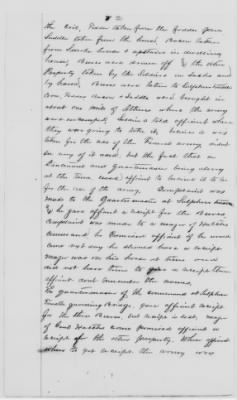 2
the crib, Fodder taken from the fodder house
Saddle taken from the house, Bacon taken
from Smoke house & upstairs in dwelling
house, Mules were driven off & the other
Property taken by the Soldiers in sacks and
by hand, Mules were taken to Sulphur trestle
Corn, Bacon, Fodder & Saddle were brought in
about one mile of Athens where the army
was encamped. Soldiers told affiant where
they was going to take it, believes it was
taken for the use of the Federal army, didnt
see any of it used, but the fact that a
Lieutenant and Quartermaster being along
at the time caused affiant to believe it to be
for the use of the army. Complaint was
made to the Quartermaster at Sulphur trestle
& he gave affiant a receipt for the Mules.
Complaint was made to a Major of
command, he Promised affiant if he would
come he should have a receipt
Major was on his horse at time and
did not have time to give a receipt then
affiant cant remember the names.
The quartermaster of the command at Sulphur
trestle guarding Bridge, gave affiant receipt
for the three Mules, but receipt is lost, Major
of command promised affiant a
receipt for the other property. When affiant
went to get receipt the army was